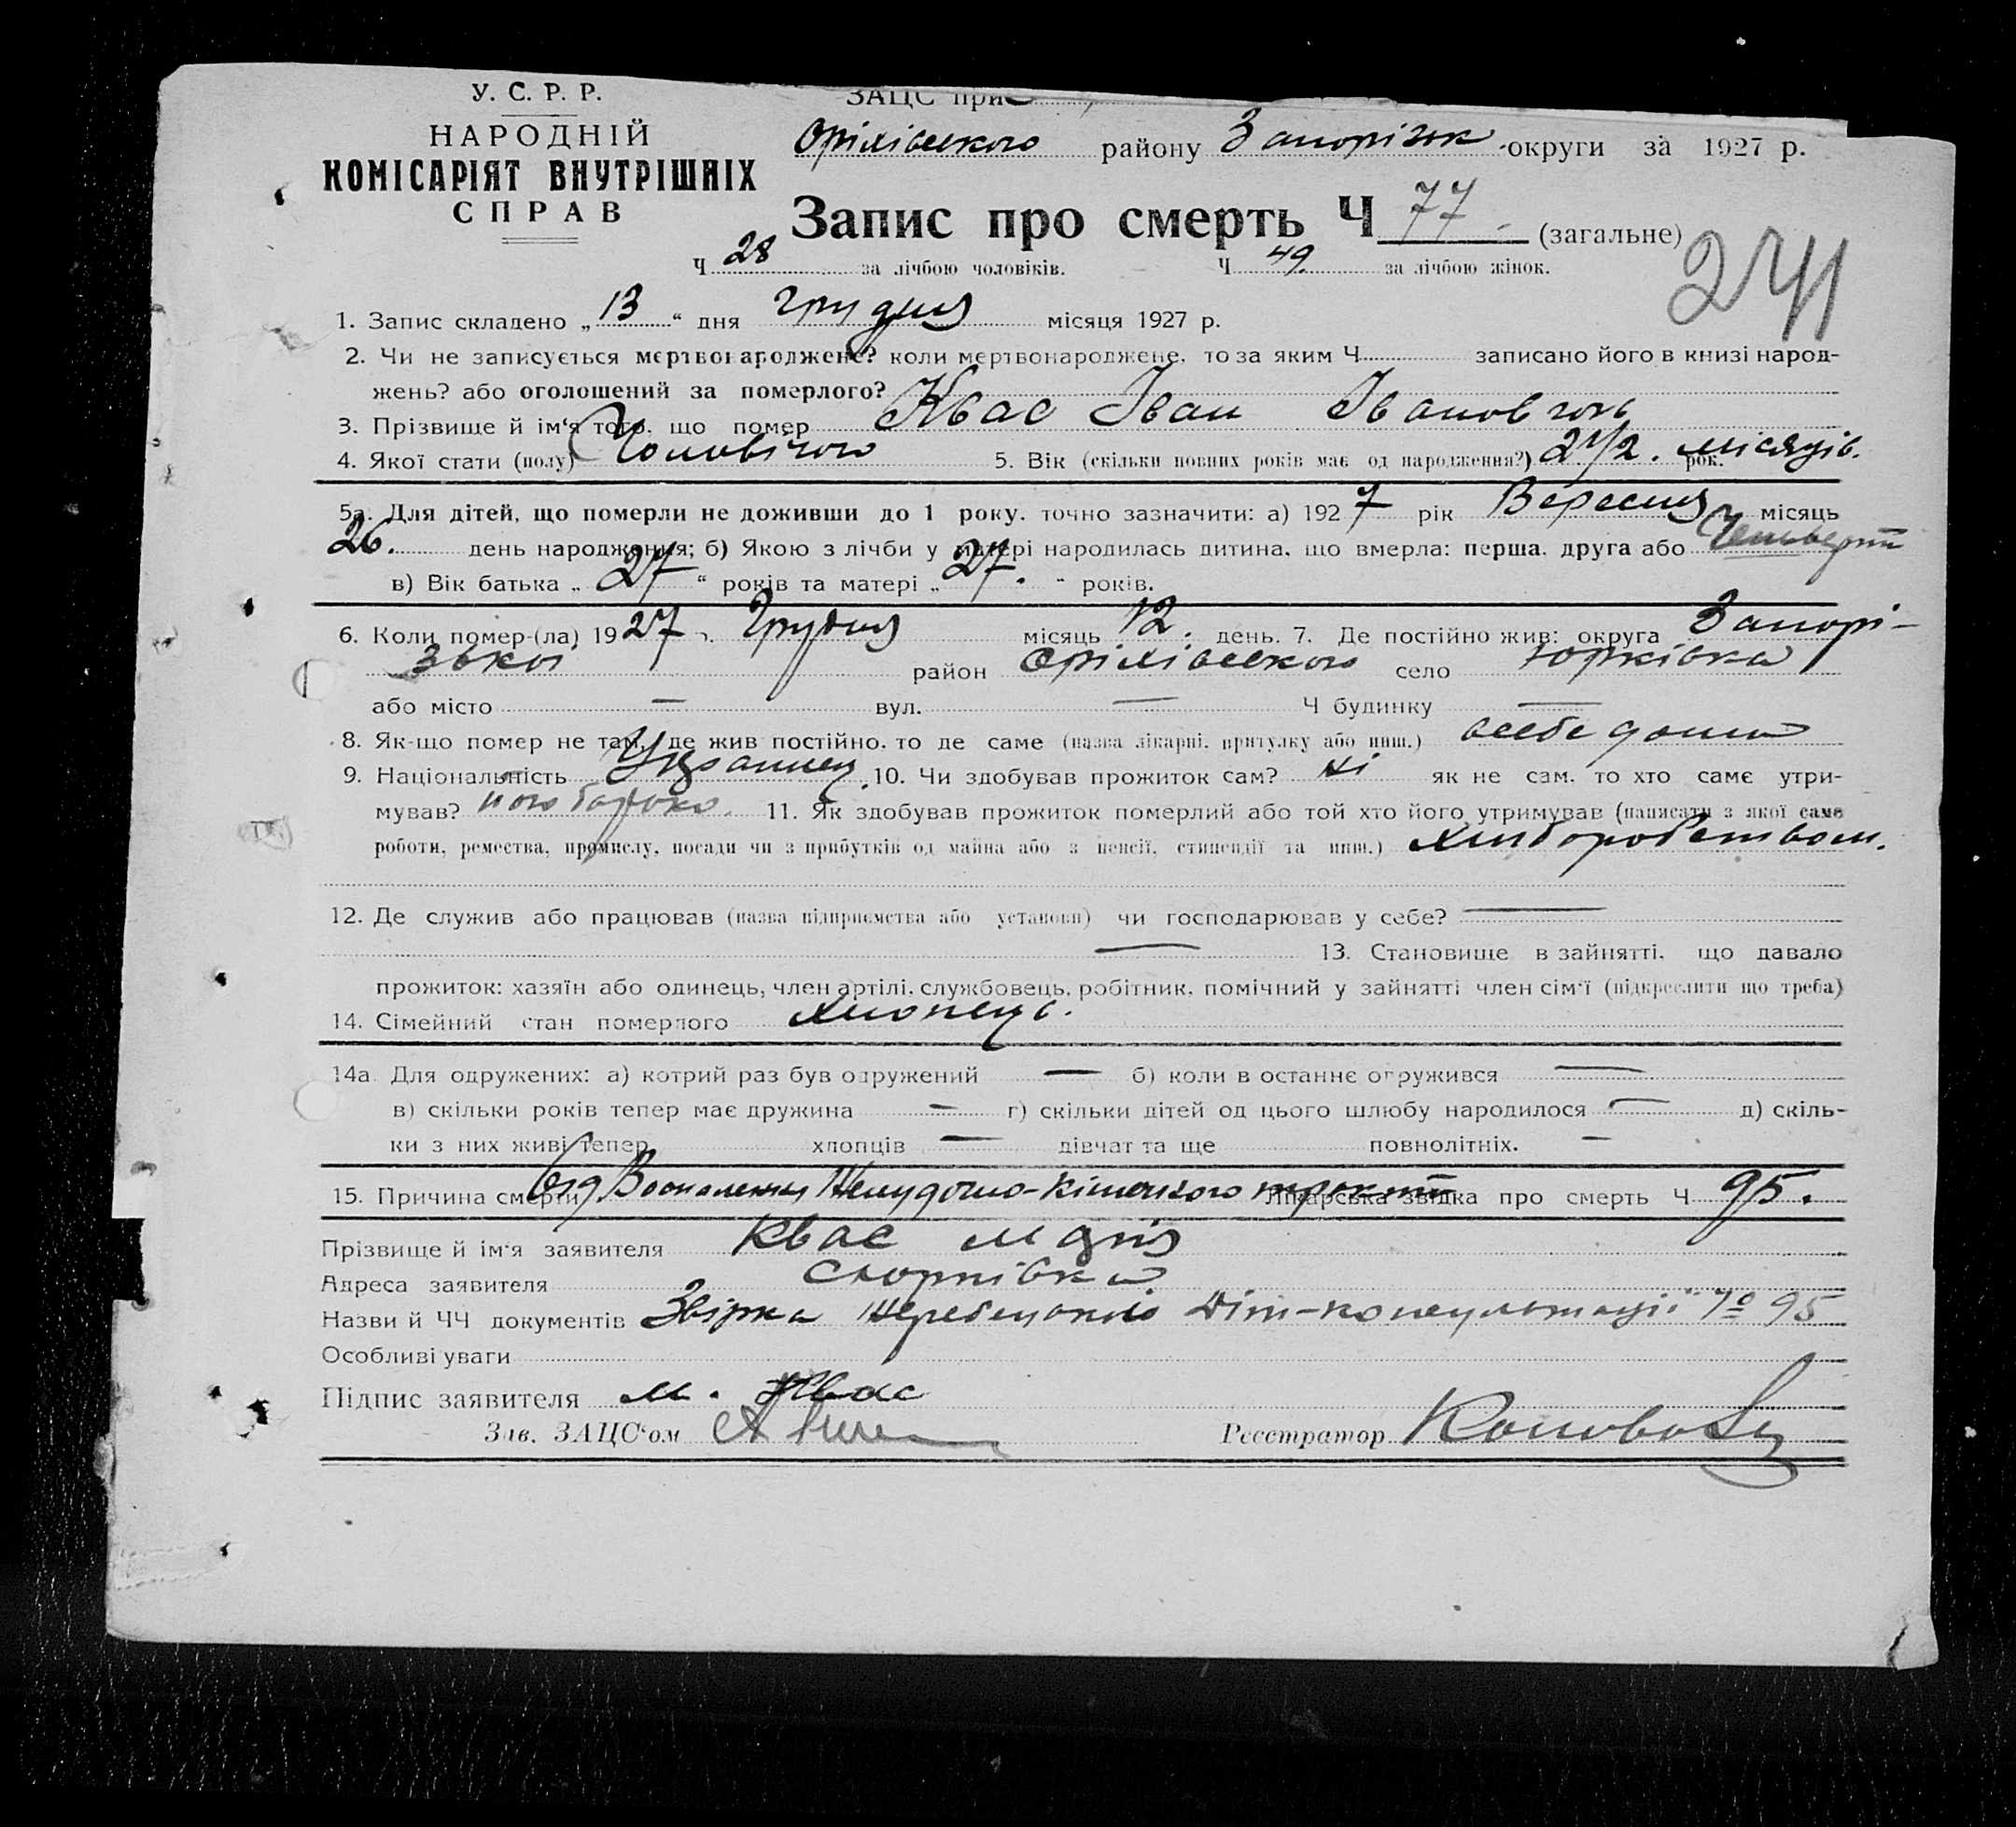 У. С. Р. Р.
НАРОДНІЙ
КОМІСАРІЯТ ВНУТРІШНІХ
СПРАВ
ЗАЦС при
Оріхівського району Запоріжк округи за 1927 р.
Запис про смерть Ч 77 (загальне)
241
Ч 28 за лічбою чоловіків. Ч 49 за лічбою жінок.
1. Запис складено „13“ дня Грудня місяця 1927 р.
2. Чи не записується мертвонароджене? коли мертвонароджене, то за яким Ч записано його в книзі народ-
жень? або оголошений за померлого?
3. Прізвище й ім‘я того, що помер Квас Іван Іванович
4. Якої стати (полу) Чоловічого 5. Вік (скільки повних років має од народження?) 2 1/2. рок. місяців.
5а. Для дітей, що померли не доживши до 1 року, точно зазначити: а) 1927 рік Вересня місяць
26. день народження; б) Якою з лічби у матері народилась дитина, що вмерла: перша, друга або Четверта
в) Вік батька „27“ років та матері „27.“ років.
6. Коли помер-(ла) 1927 р. Грудня місяць 12. день. 7. Де постійно жив: округа Запорі-
зької район Оріхівського село Юрківка
або місто — вул. — Ч будинку —
8. Як-що помер не там, де жив постійно, то де саме (назва лікарні, притулку або инш.) всебе дома
9. Національність Українец. 10. Чи здобував прожиток сам? ні як не сам, то хто саме утри-
мував? його батько. 11. Як здобував прожиток померлий або той хто його утримував (написати з якої саме
роботи, ремества, промислу, посади чи з прибутків од майна або з пенсії, стипендії та инш.) хліборобством.
12. Де служив або працював (назва підприємства або установи) чи господарював у себе? —
— 13. Становище в зайнятті, що давало
прожиток: хазяїн або одинець, член артілі, службовець, робітник, помічний у зайнятті член сім‘ї (підкреслити що треба)
14. Сімейний стан померлого хлопець.
14а. Для одружених: а) котрий раз був одружений — б) коли в останнє одружився —
в) скільки років тепер має дружина — г) скільки дітей од цього шлюбу народилося — д) скіль-
ки з них живі тепер хлопців — дівчат та ще повнолітніх. —
15. Причина смерти Од Воспаления Желудочно-Кішечного тракта Лікарська звідка про смерть Ч 95.
Прізвище й ім‘я заявителя Квас
Адреса заявителя
Назви й ЧЧ документів Дит-консультації № 95
Особливі уваги
Підпис заявителя М. Квас
Зав. ЗАЦС‘ом Реєстратор